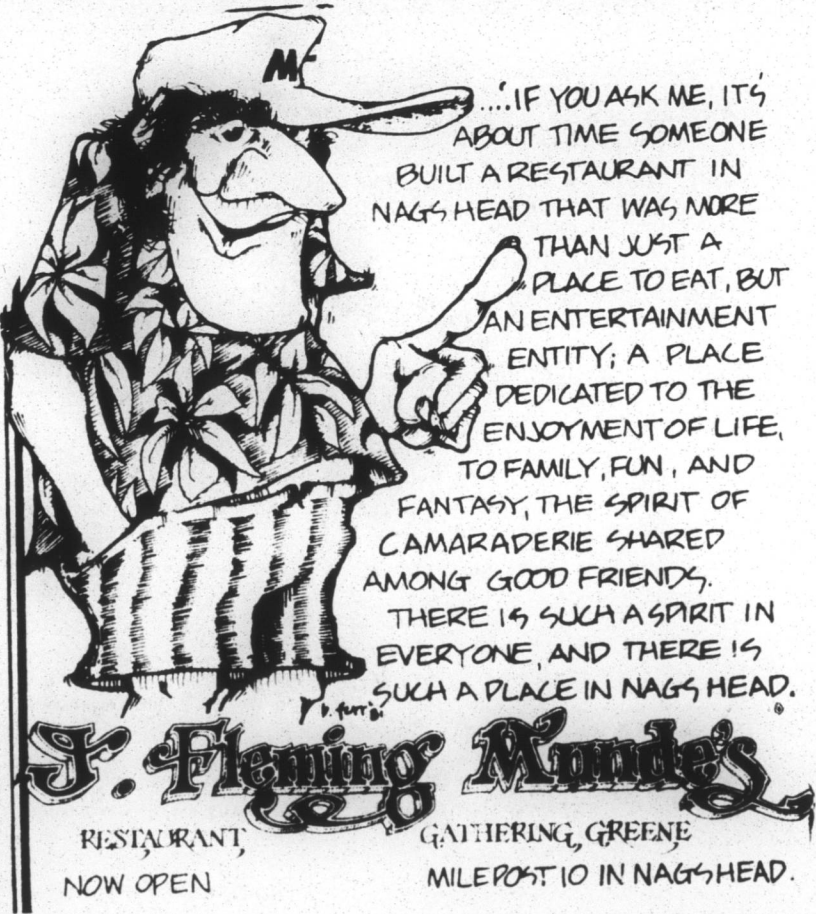 M
....'IF YOU ASK ME, IT'S
ABOUT TIME SOMEONE
BUILT A RESTAURANT IN
NAGS HEAD THAT WAS MORE
THAN JUST A
PLACE TO EAT, BUT
AN ENTERTAINMENT
ENTITY; A PLACE
DEDICATED TO THE
ENJOYMENT OF LIFE,
TO FAMILY, FUN, AND
FANTASY, THE SPIRIT OF
CAMARADERIE SHARED
AMONG GOOD FRIENDS.
THERE IS SUCH A SPIRIT IN
EVERYONE, AND THERE IS
SUCH A PLACE IN NAGS HEAD.
J. Fleming Munde's
RESTAURANT, GATHERING, GREENE
NOW OPEN MILEPOST 10 IN NAGS HEAD.